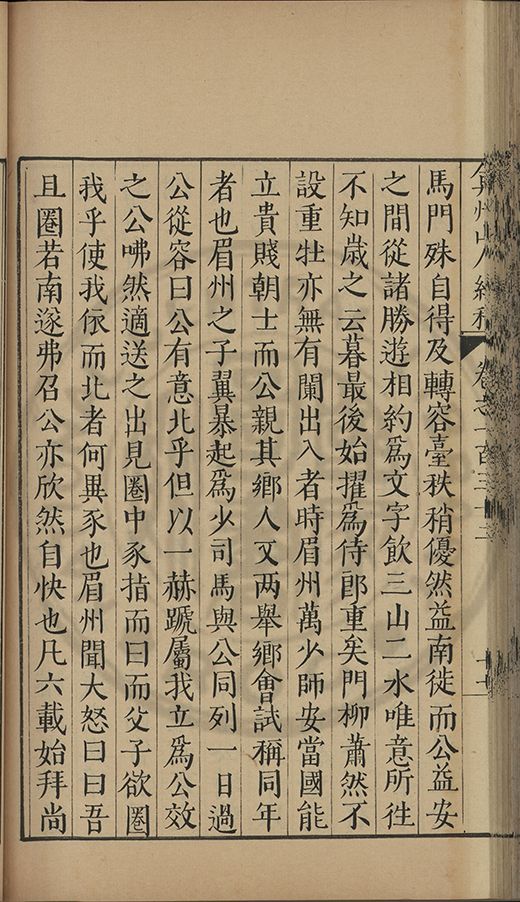 馬門殊自得及轉容臺秩稍優然益南徙而公益安
之間從諸勝遊相約爲文字飲三山二水唯意所徃
不知歲之云暮最後始擢爲侍郎重矣門柳蕭然不
設重牡亦無有闌出入者時眉州萬少師安當國能
立貴賤朝士而公親其鄉人又两舉鄉會試稱同年
者也眉州之子翼暴起爲少司馬與公同列一日過
公從容曰公有意北乎但以一赫蹏屬我立爲公效
之公咈然適送之出見圈中豕指而曰而父子欲圈
我乎使我依而北者何異豕也眉州聞大怒曰曰吾
且圈若南遂弗召公亦欣然自快也凡六載始拜尚